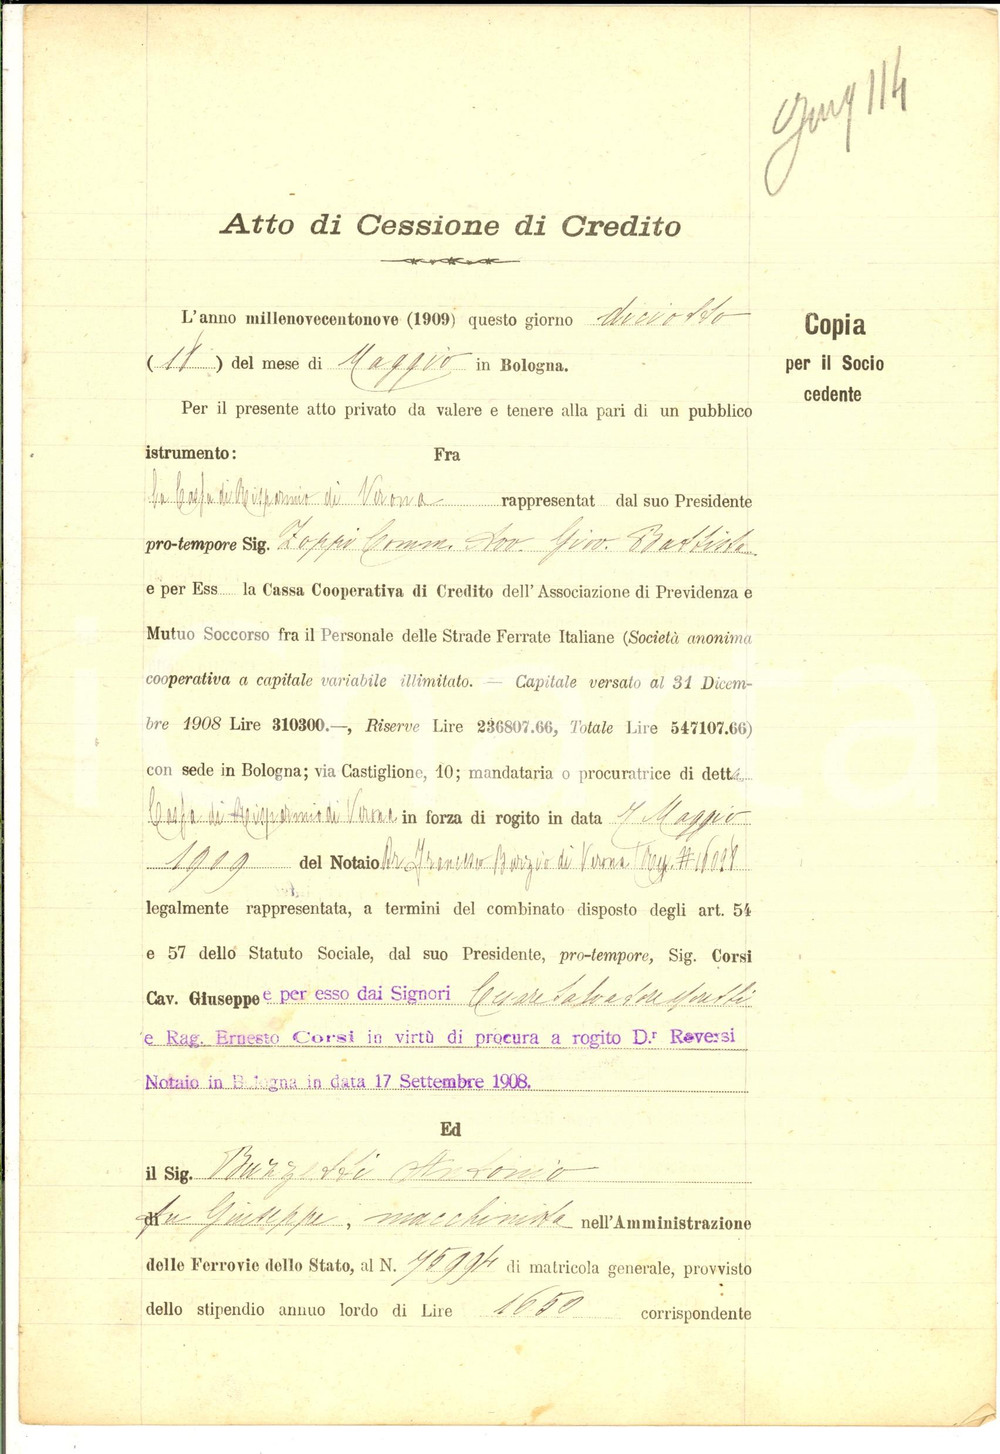 114
Atto di Cessione di Credito
L'anno millenovecentonove (1909) questo giorno diciotto
(18) del mese di Maggio in Bologna.
Copia
per il Socio
cedente
Per il presente atto privato da valere e tenere alla pari di un pubblico
istrumento: Fra
la Cassa di Risparmio di Verona rappresentat dal suo Presidente
pro-tempore Sig. Zoppi Comm. Avv. Giov. Battista
e per Ess la Cassa Cooperativa di Credito dell'Associazione di Previdenza e
Mutuo Soccorso fra il Personale delle Strade Ferrate Italiane (Società anonima
cooperativa a capitale variabile illimitato. — Capitale versato al 31 Dicem-
bre 1908 Lire 310300.—, Riserve Lire 236807.66, Totale Lire 547107.66)
con sede in Bologna; via Castiglione, 10; mandataria o procuratrice di detta
Cassa di Risparmio di Verona in forza di rogito in data 7 Maggio
1909 del Notaio Dr Francesco di Verona
legalmente rappresentata, a termini del combinato disposto degli art. 54
e 57 dello Statuto Sociale, dal suo Presidente, pro-tempore, Sig. Corsi
Cav. Giuseppe e per esso dai Signori Salvatore
e Rag. Ernesto Corsi in virtù di procura a rogito D.r Reversi
Notaio in Bologna in data 17 Settembre 1908.
Ed
il Sig. Buzzetti Antonio
di fu Giuseppe, macchinista nell'Amministrazione
delle Ferrovie dello Stato, al N. 75994 di matricola generale, provvisto
dello stipendio annuo lordo di Lire 1650 corrispondente